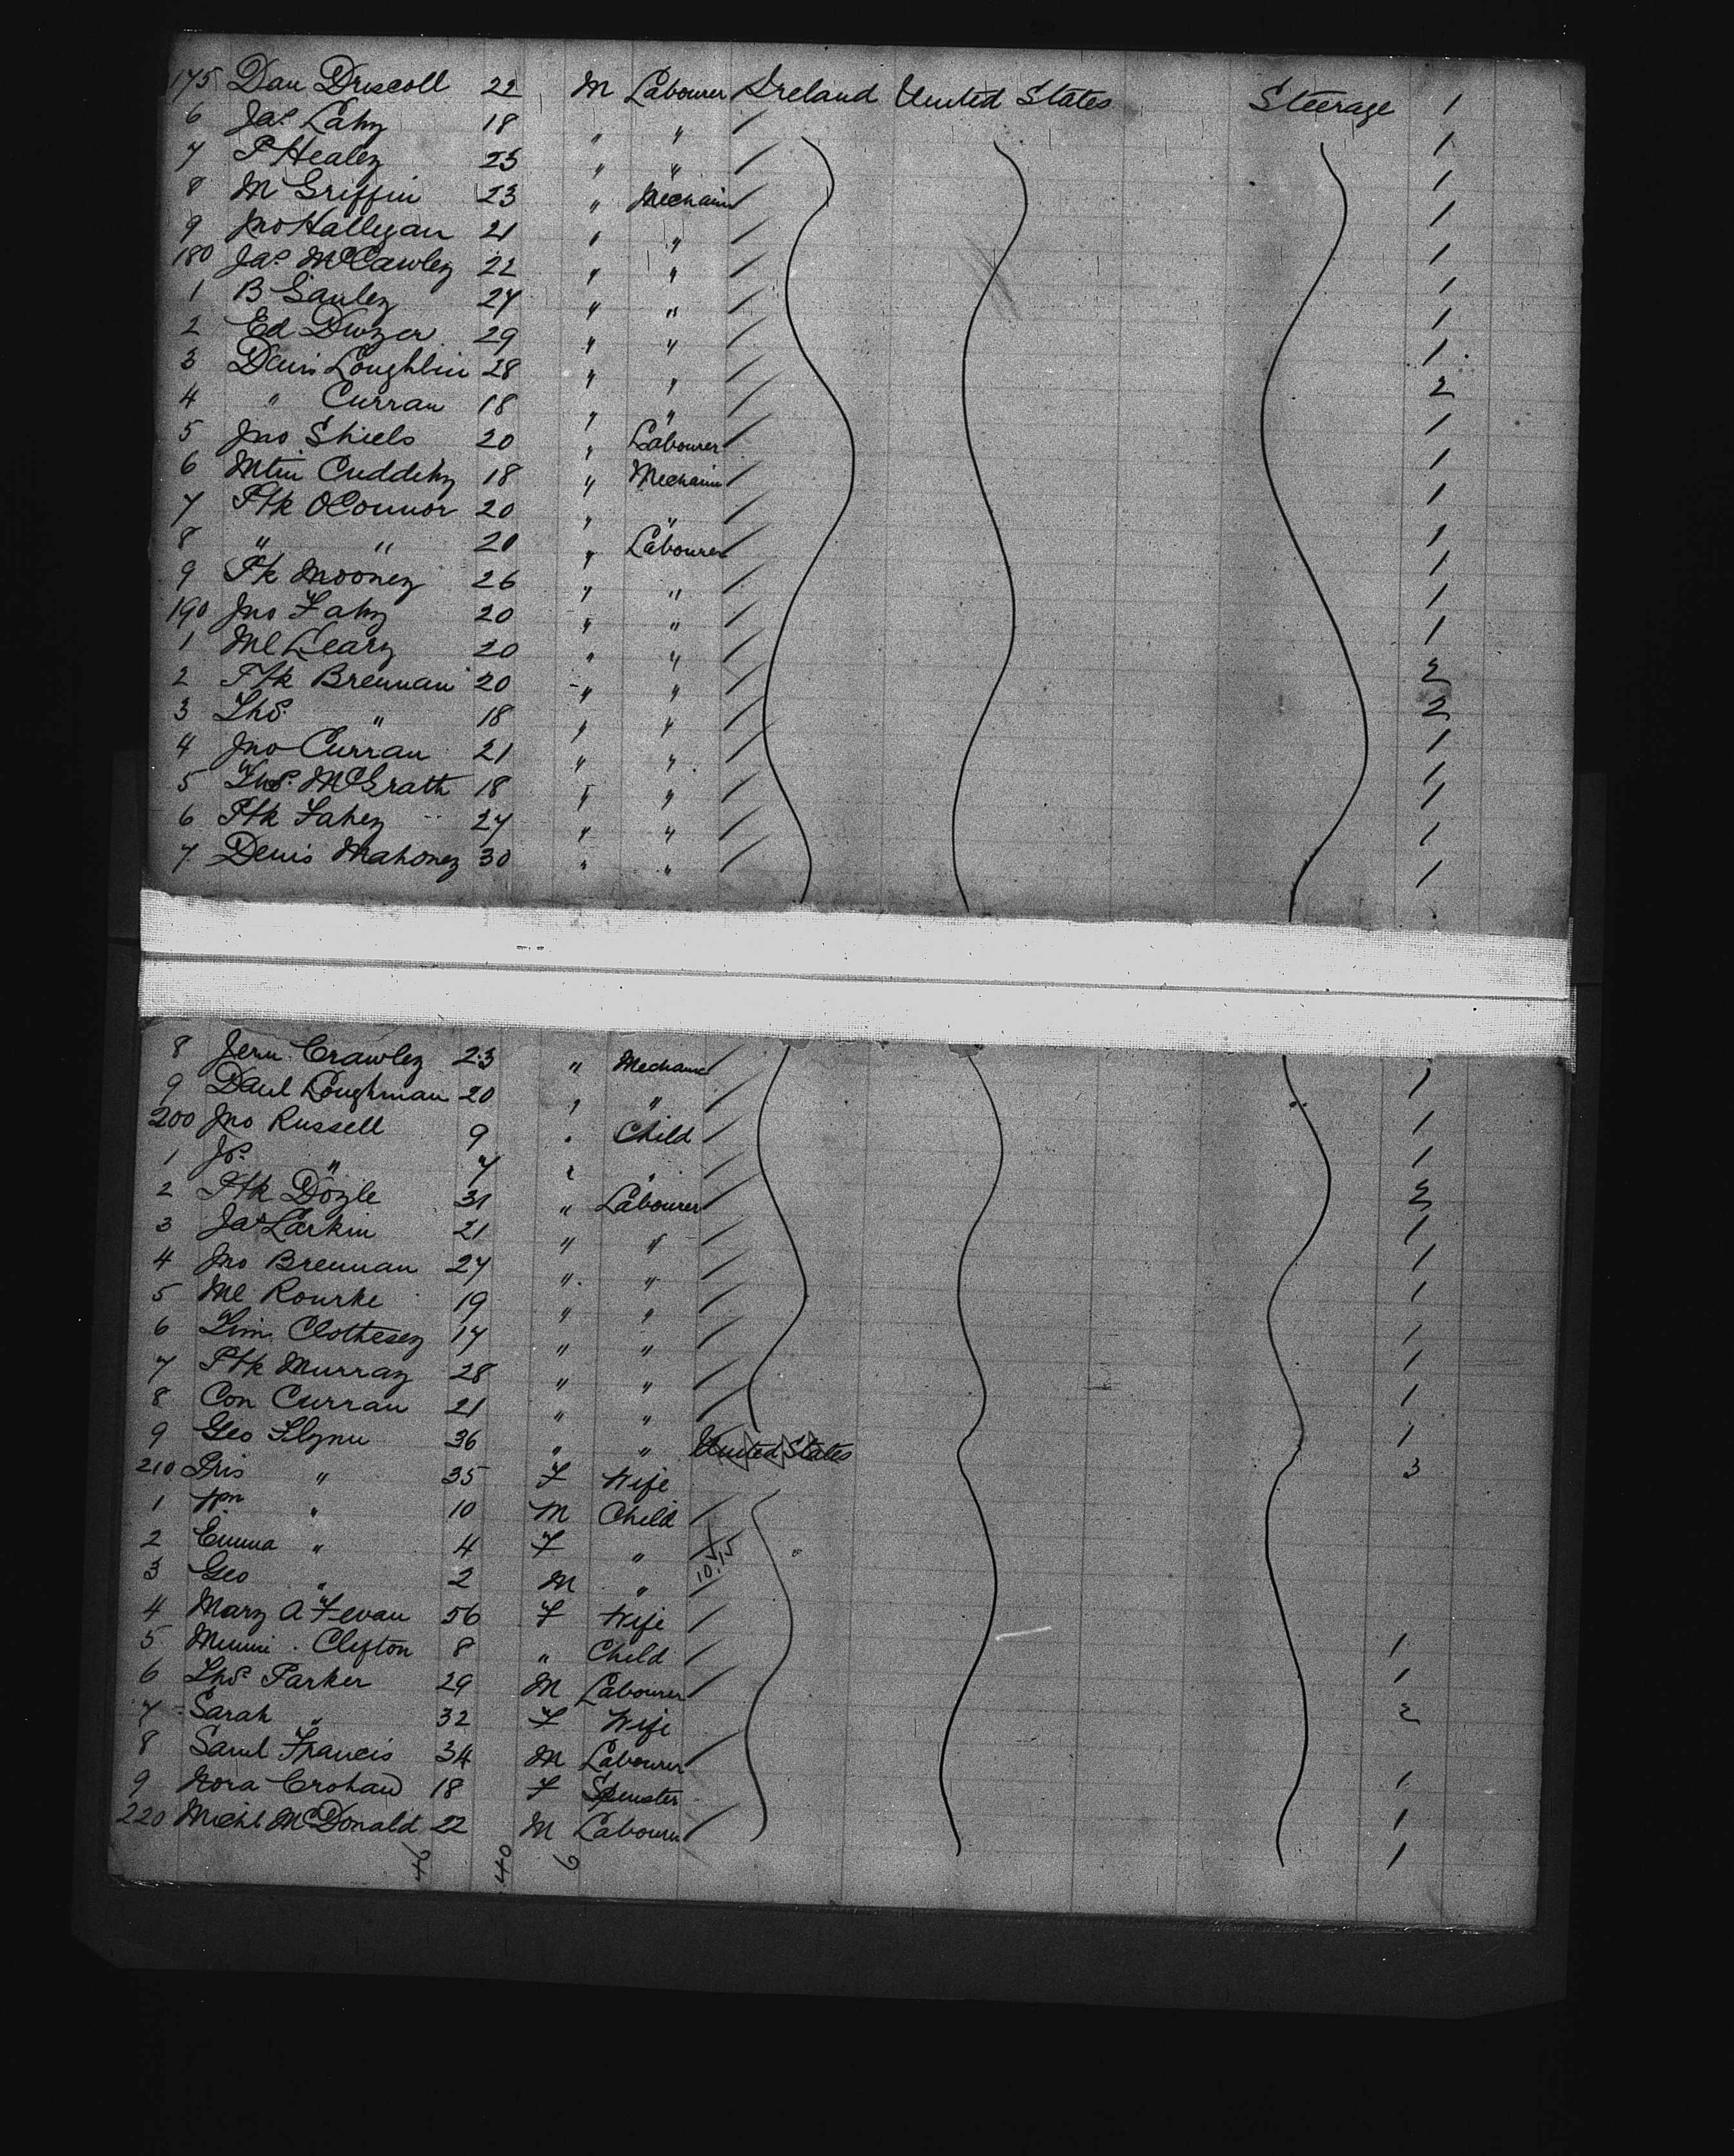 175 Dan Driscoll 22 M Labourer Ireland United States Steerage 1
6 Jas Lahy 18 " " 1
7 P Healey 25 " " 1
8 M Griffin 23 " Mechanic 1
9 Jno Hallegan 21 " " 1
180 Jas McCawley 22 " " 1
1 B Ganley 24 " " 1
2 Ed Dwyer 29 " " 1
3 Denis Loughlin 28 " " 2
4 " Curran 18 " " 1
5 Jno Shiels 20 " Labourer 1
6 Mtin Cuddehy 18 " Mechanic 1
7 Ptk OConnor 20 " " 1
8 " " 20 " Labourer 1
9 Pk Mooney 26 " " 1
190 Jno Fahy 20 " " 1
1 Ml Leary 20 " " 2
2 Ptk Brennan 20 " " 2
3 Thos " 18 " " 1
4 Jno Curran 21 " " 1
5 Thos McGrath 18 " " 1
6 Ptk Fahey 24 " " 1
7 Denis Mahoney 30 " " 1
8 Jeru Crawley 23 " Mechanic 1
9 Danl Loughman 20 " " 1
200 Jno Russell 9 " Child 1
1 Js " 7 " " 2
2 Ptk Doyle 31 " Labourer 1
3 Jas Larkin 21 " " 1
4 Jno Brennan 24 " " 1
5 Ml Rourke 19 " " 1
6 Tim Clothesey 17 " " 1
7 Ptk Murray 28 " " 1
8 Con Curran 21 " " 1
9 Geo Flynn 36 " " United States 3
210 Pris " 35 F Wife
1 Wm " 10 M Child
2 Emma " 4 F " 10.15
3 Geo " 2 M "
4 Mary A Fevan 56 F Wife 1
5 Minni Clifton 8 " Child 1
6 Thos Parker 29 M Labourer 2
7 Sarah " 32 F Wife
8 Saml Francis 34 M Labourer 1
9 Nora Crohan 18 F Spinster 1
220 Michl McDonald 22 M Labourer 1
46 40 6